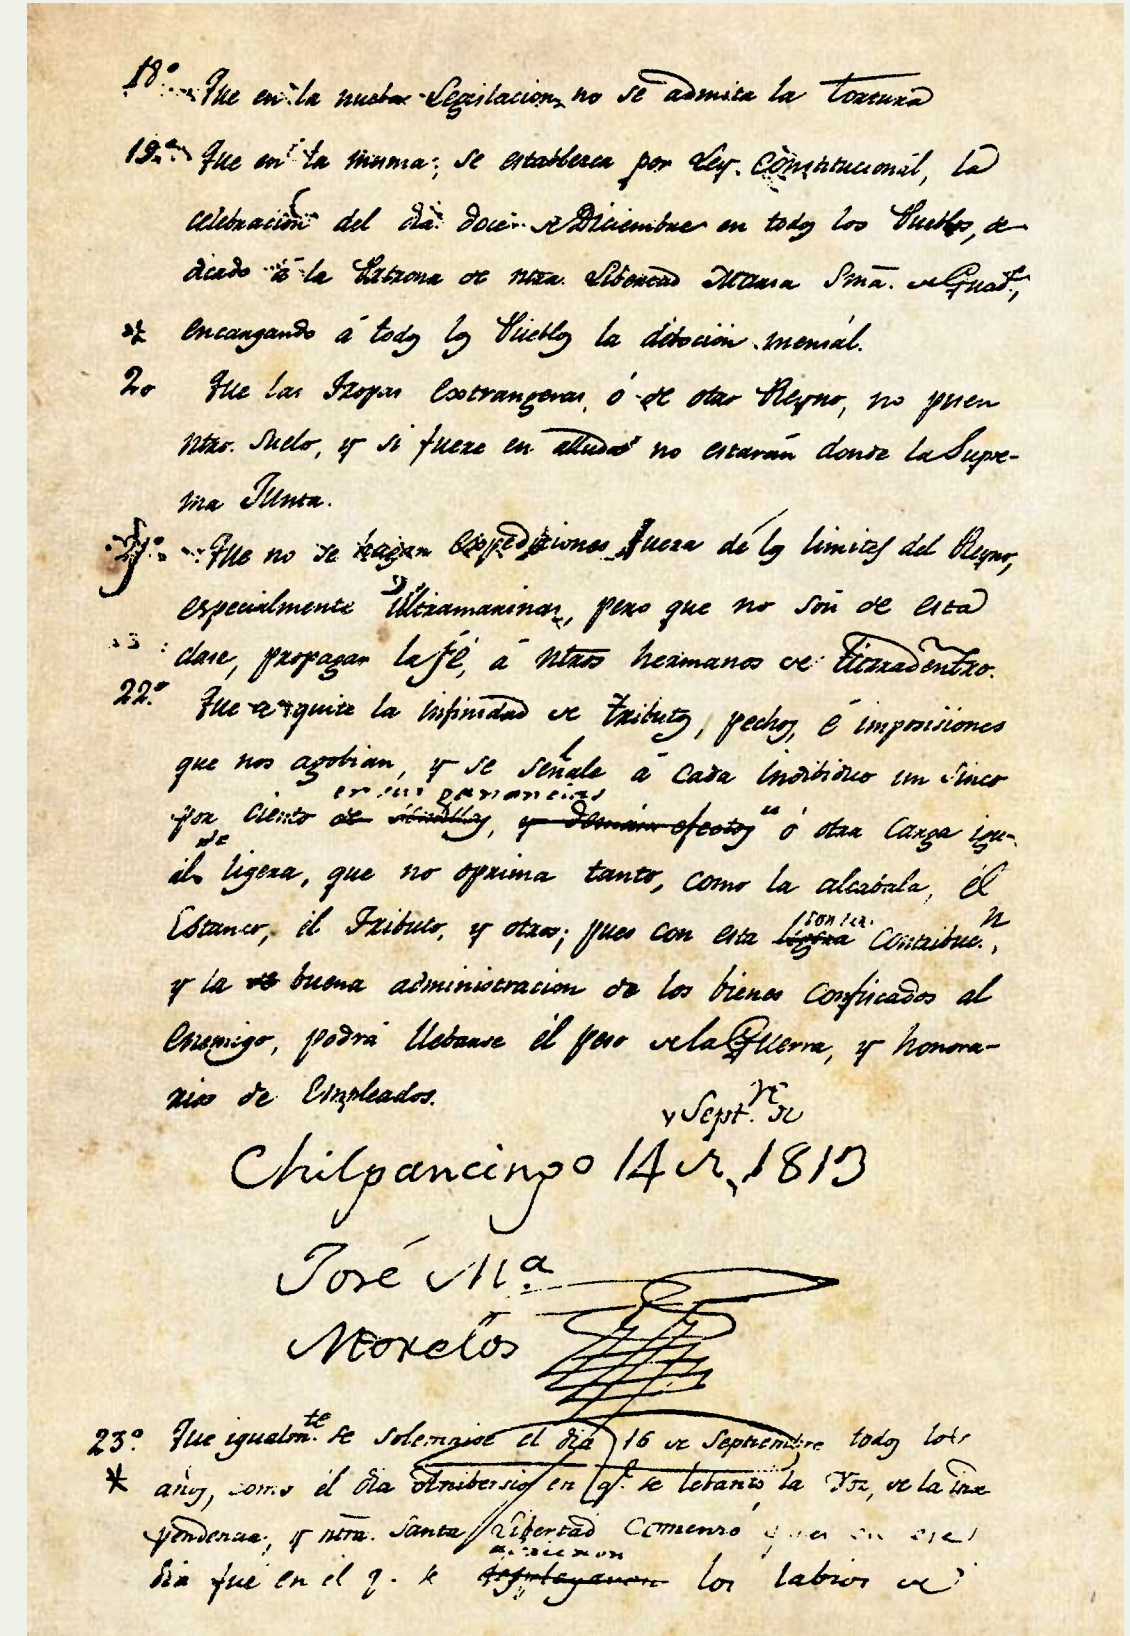 18º Que en la nueba Legislacion, no se admita la Tortura
19º Que en la misma, se establesca por Ley Constitucional, la
celebración del dia doce de Diciembre en todos los Pueblos, de-
dicado á la Patrona de ntra. Libertad Maria Smã. de Guade,
encargando á todos los Pueblos la debocion mensál.
20 Que las tropas extrangeras, ó de otro Reyno, no pisen
ntro. Suelo, y si fuere en alluda no estarán donde la Supre-
ma Junta.
21º Que no se hagan expediciones fuera de los limites del Reyno,
especialmente Ultramarinas, pero que no són de esta
clase, propagar la fé, á ntros hermanos de tierradentro.
22º Que se quite la infinidad de tributos, pechos, é imposisiones
que nos agobian, y se señale á cada indibiduo un sinco
en sus ganancias
por ciento de semillas, y demás efectos ó otra carga igu-
al, ligera, que no oprima tanto, como la alcabala, él
Estanco, él Tributo, y otros; pues con esta ligera contribucn,
y la buena administracion de los bienes confiscados al
Enemigo, podrá llebarse él peso de la Guerra, y honora-
rios de Empleados.
Septre de
Chilpancingo 14 de 1813
José Mª
Morelos
23º Que igualmte se solemnise el dia 16 de Septiembre todos los
* años, como él dia Anibersio en q. se lebantó la Voz, de la inde
pendencia, y ntra. Santa Libertad Comenzó pues en ese
abrieron
dia fué en él q. se desplegaron los labios de